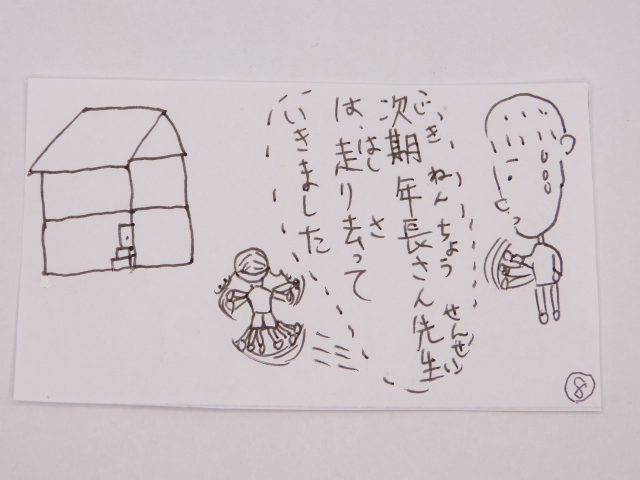 次期年長さん先生
じきねんちょうせんせい
は、走り去って
はしさ
いきました
⑧